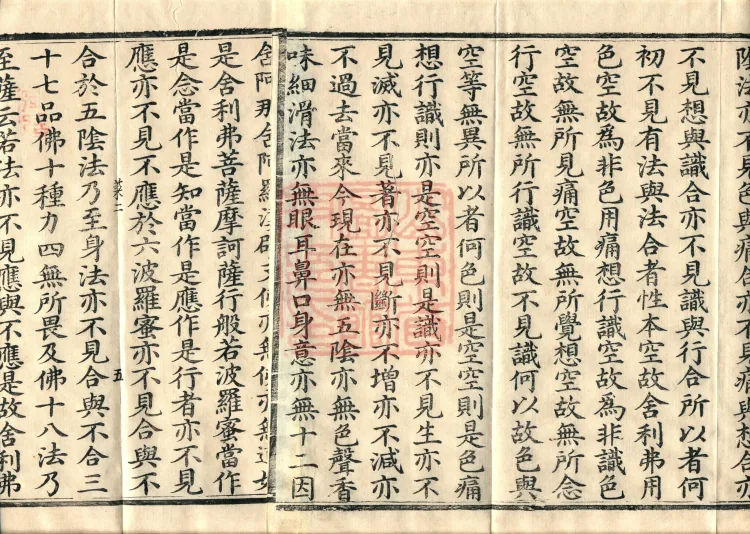 陰法亦不見色與痛合亦不見痛與想合亦
不見想與識合亦不見識與行合所以者何
初不見有法與法合者性本空故舍利弗用
色空故為非色用痛想行識空故為非識色
空故無所見痛空故無所覺想空故無所念
行空故無所行識空故不見識何以故色與
空等無異所以者何色則是空空則是色痛
想行識則亦是空空則是識亦不見生亦不
見滅亦不見著亦不見斷亦不增亦不減亦
不過去當來今現在亦無五陰亦無色聲香
味細滑法亦無眼耳鼻口身意亦無十二因
舍阿那含阿羅漢辟支佛亦無佛亦無道如
是舍利弗菩薩摩訶薩行般若波羅蜜當作
是念當作是知當作是應作是行者亦不見
應亦不見不應於六波羅蜜亦不見合與不
菜二 五
合於五陰法乃至身法亦不見合與不合三
十七品佛十種力四無所畏及佛十八法乃
至薩云若法亦不見應與不應是故舍利弗